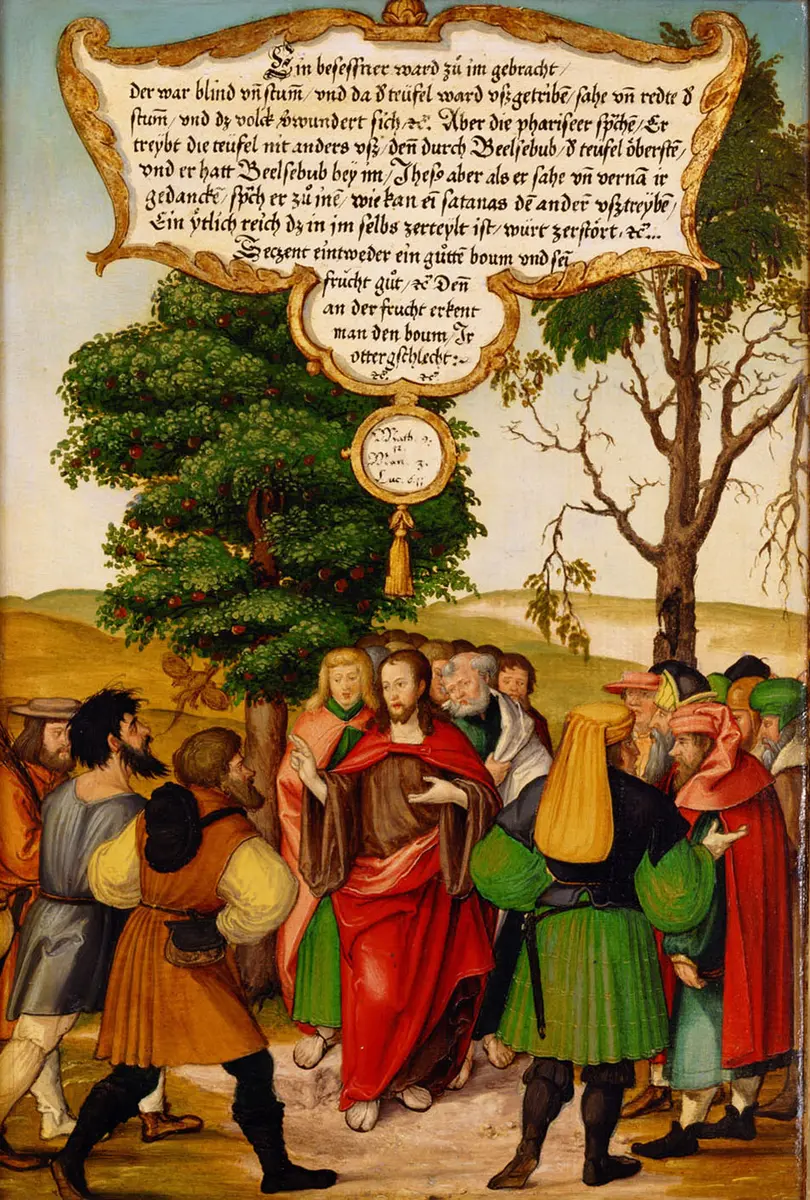 Ein besessner ward zů im gebracht/
der war blind vn̄ stum̄/ vnd da d̕ teüfel ward vßgetribē/ sahe vn̄ redte d̕
stum̄/ vnd dz volck v̕wundert sich/ ꝛc̄. Aber die phariseer sp̄chē/ Er
treybt die teüfel nit anders vß/ den̄ durch Beelsebub/ d̕ teüfel öberstē/
vnd er hatt Beelsebub bey im/ Jhesꝰ aber als er sahe vn̄ vernā ir
gedanckē/ sp̄ch er zů inē/ wie kan ei̅ satanas dē ander̄ vßtreybē/
Ein ÿtlich reich dz in im selbs zerteylt ist/ würt zerstört/ ꝛc̄...
Seczent eintweder ein gůttē boum vnd sei̅
frücht gůt/ ꝛc̄ Den̄
an der frucht erkent
man den boum/ Jr
ottergschlecht:~
ꝛc̄ ꝛc̄
Math. 9.
12
Mar. 3.
Luc. 6. 11